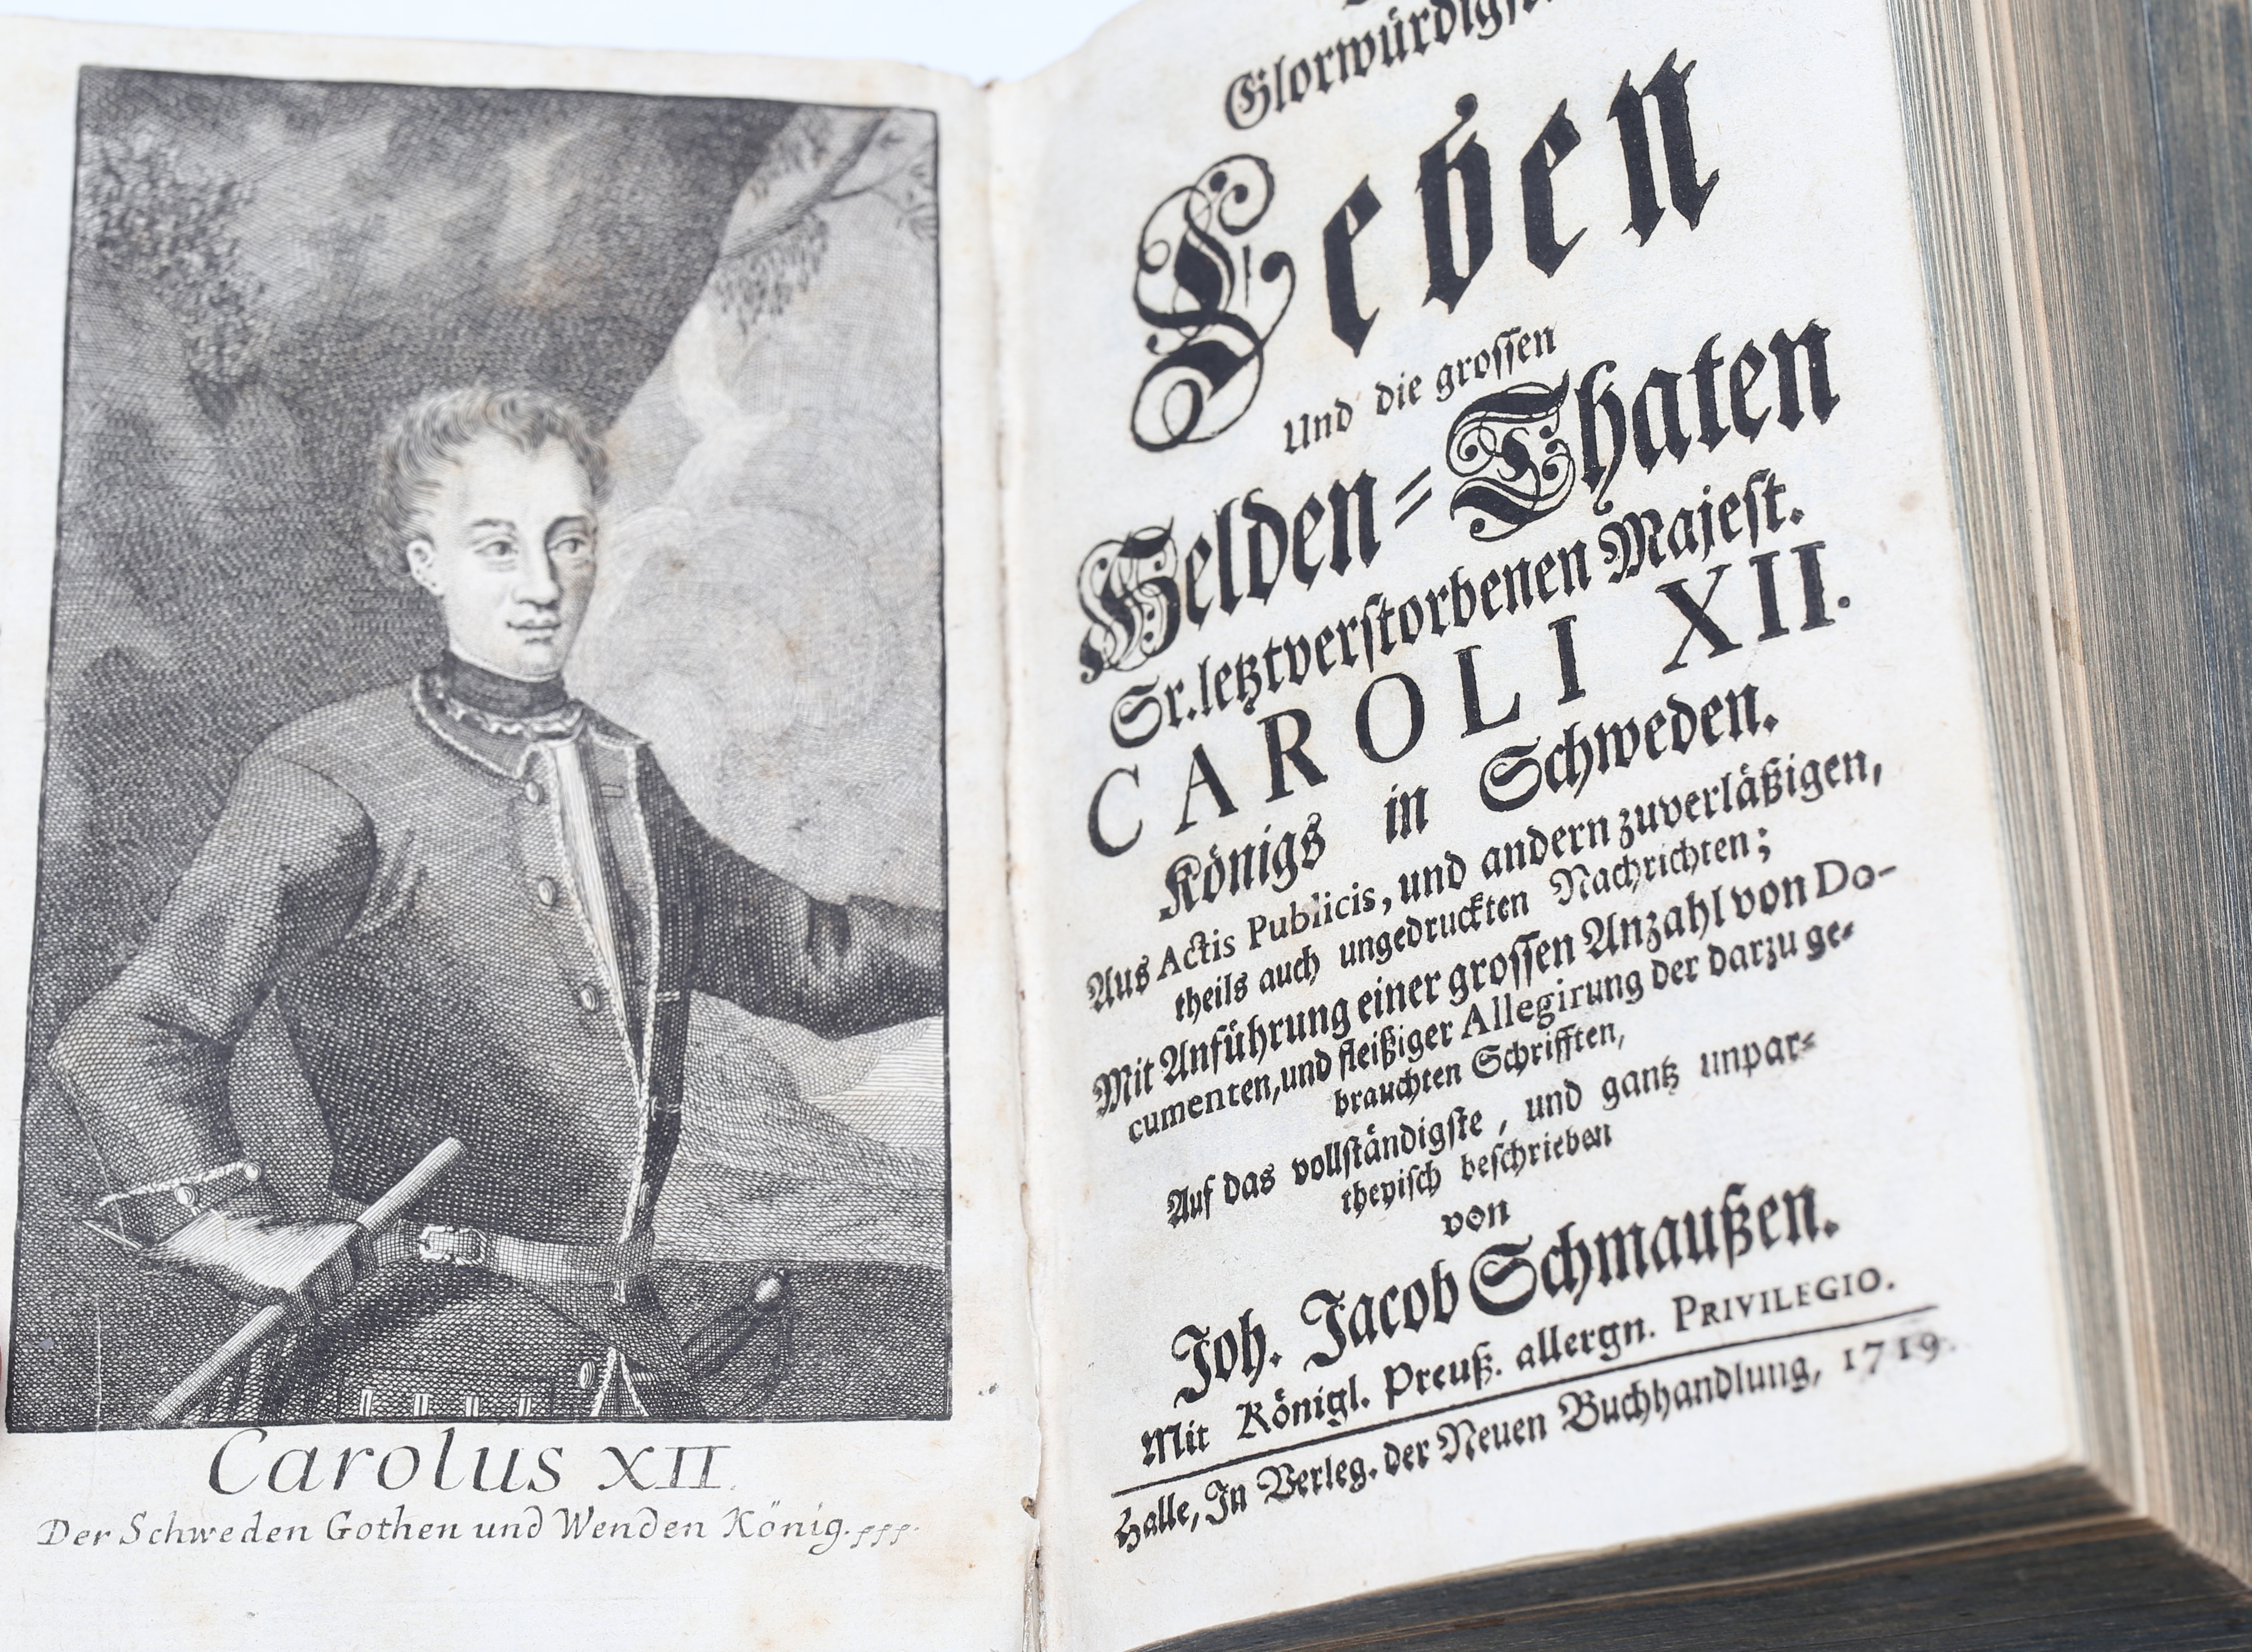 Carolus XII.
Der Schweden Gothen und Wenden König.
Leben
Und die groſſen
Helden-Thaten
Sr. letztverſtorbenen Majeſt.
CAROLI XII.
Königs in Schweden.
Aus Actis Publicis, und andern zuverläßigen,
theils auch ungedruckten Nachrichten;
Mit Anführung einer groſſen Anzahl von Do-
cumenten, und fleißiger Allegirung der darzu ge-
brauchten Schrifften,
Auf das vollſtändigſte, und gantz unpar-
theyiſch beſchrieben
von
Joh. Jacob Schmaußen.
Mit Königl. Preuß. allergn. PRIVILEGIO.
Halle, In Verleg. der Neuen Buchhandlung, 1719.